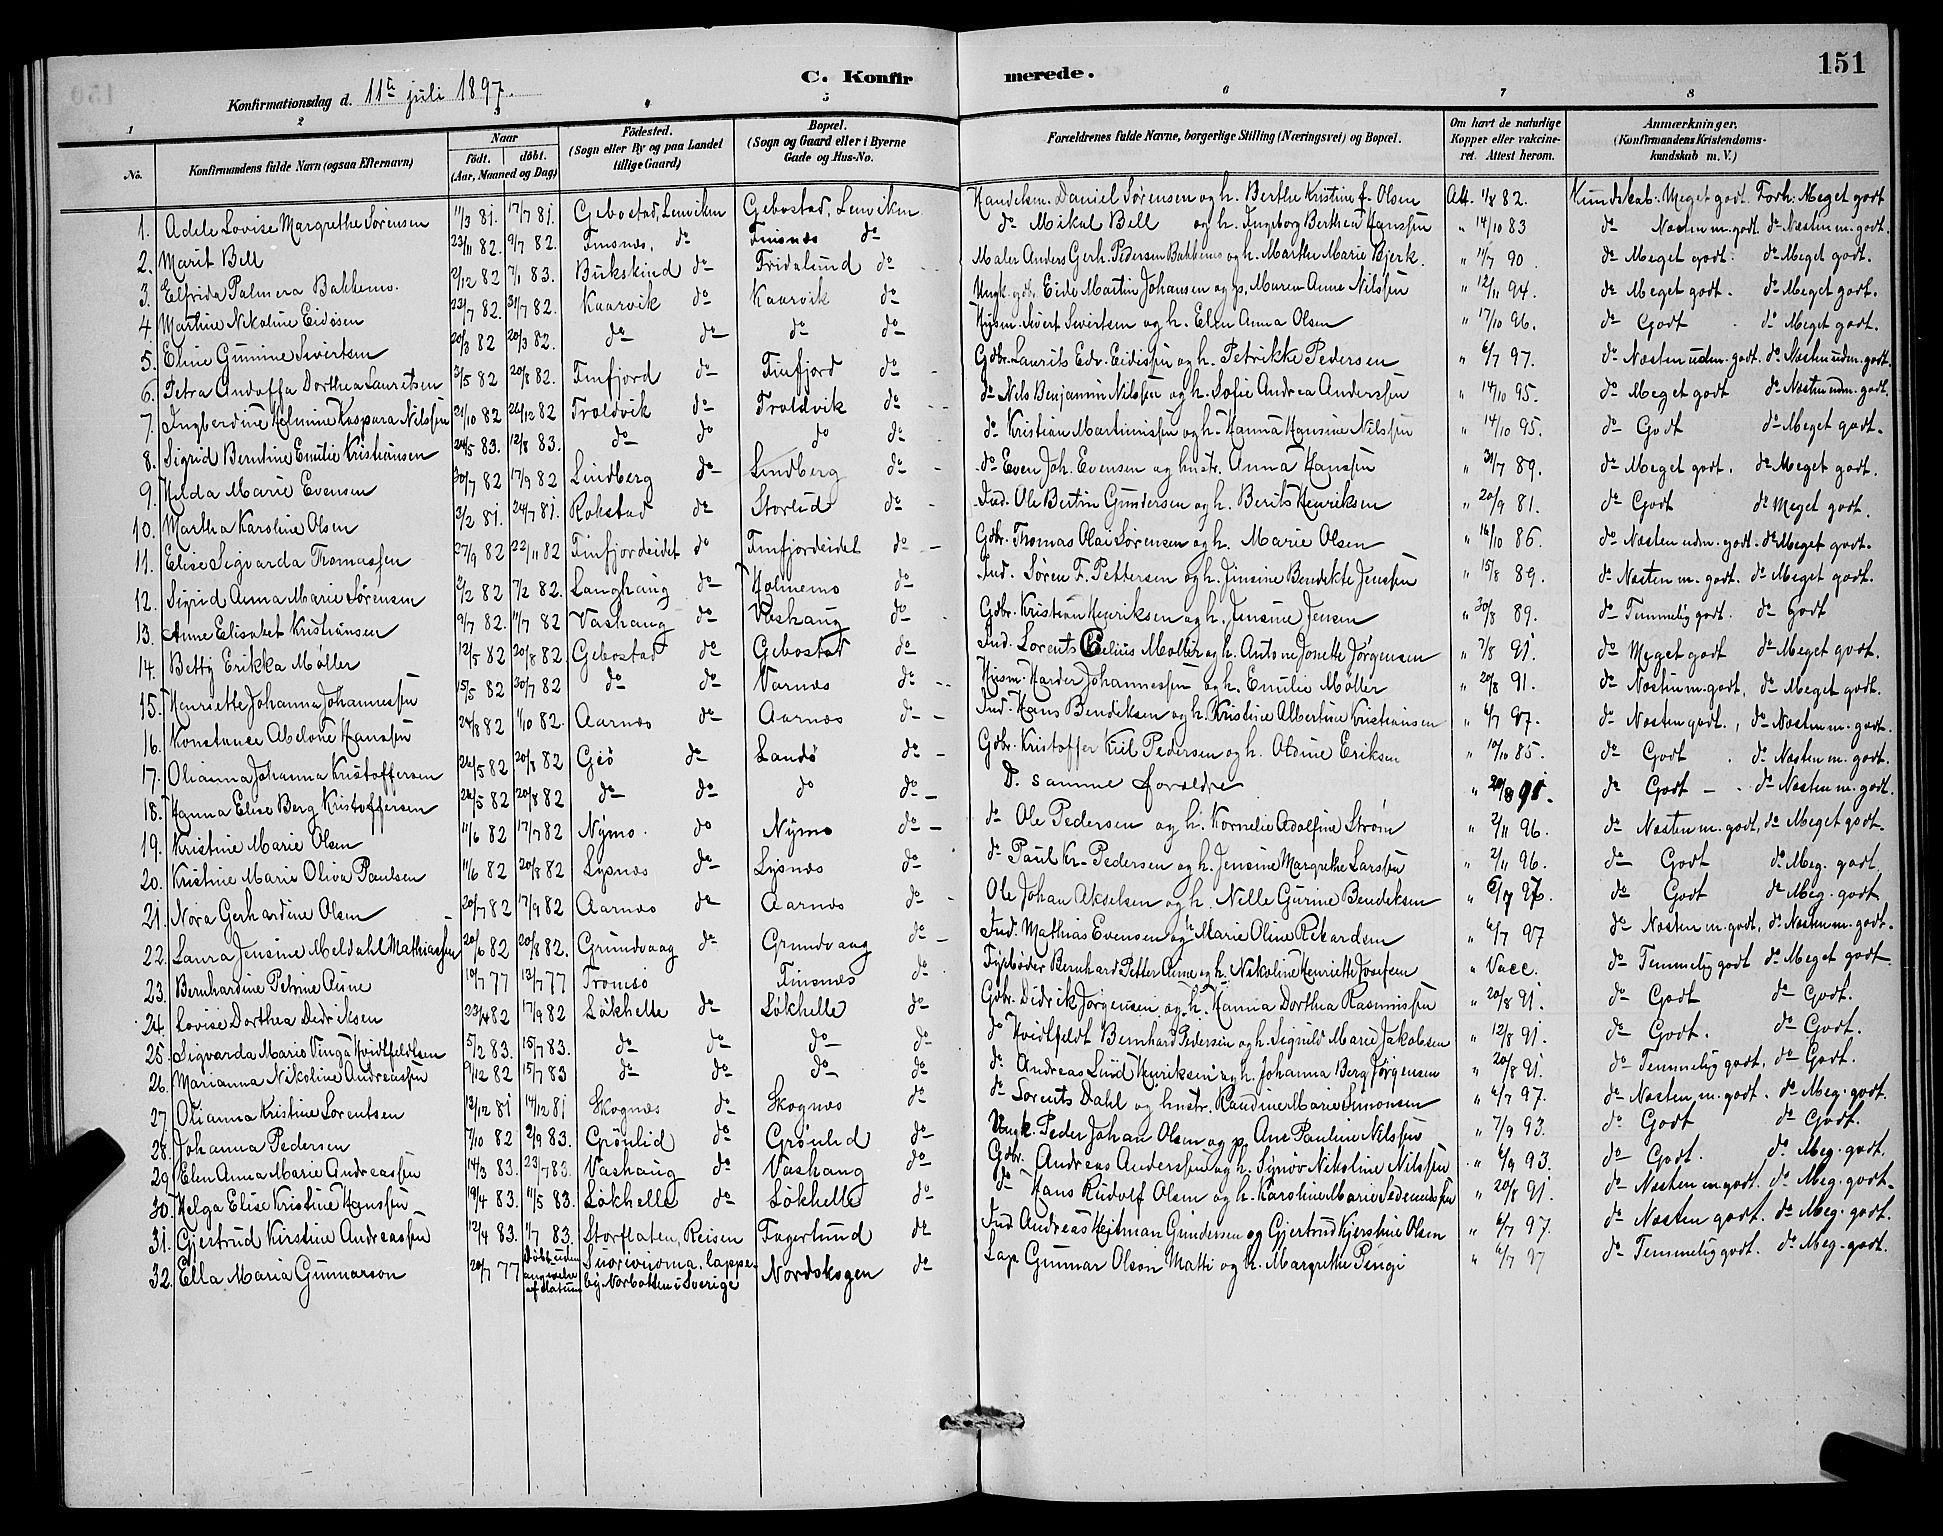 151
C. Konfir merede.
Konfirmationsdag d. 11te juli 1897.
1 2 3 4 5 6 7 8
No. Konfirmandens fulde Navn (ogsaa Efternavn) Naar født. døbt. (Aar, Maaned og Dag) Fødested. (Sogn eller By og paa Landet tillige Gaard) Bopæl. (Sogn og Gaard eller i Byerne Gade og Hus-No. Forældrenes fulde Navne, borgerlige Stilling (Næringsvei) og Bopæl. Om havt de naturlige Kopper eller vakcineret. Attest herom. Anmærkninger. (Konfirmandens Kristendomskundskab m. V.)
1. Adele Lovise Margrethe Sørensen 11/3 81. 17/7 81. Gebostad, Lenviken Gebostad, Lenviken Handelsm. Daniel Sørensen og h. Berthe Kristine f. Olsen Att. 1/8 82. Kundskab. Meget godt. Forh. Meget godt
2. Marit Bell 23/11 82. 9/7 82. Finsnæs, do Finsnæs do do Mikal Bell og h. Ingeborg Berthea Hanssen " 14/10 83 do Næsten m. godt. do Næsten m. godt.
3. Elfrida Palmera Bakkemo. 2/12 82 7/1 83. Bukskind do Fridalund do Maler Anders Gerh. Pedersen Bakkemo og h. Marthe Marie Bjerk. " 11/7 90. do Meget godt. do Meget godt.
4. Martine Nikoline Eidesen 23/7 82. 31/7 82. Kaarvik do Kaarvik do Ungk. gdbr. Eide Martin Johansen og p. Maren Anne Nilssen " 12/11 94. do Meget godt. do Meget godt.
5. Eline Gunine Sivertsen 20/3 82 20/3 82. do do do do Husm. Sivert Sivertsen og h. Elen Anna Olsen " 17/10 96. do Godt do Meget godt.
6. Petra Andoffa Dorthea Lauritsen 3/5 82 20/8 82. Finfjord do Finfjord do Gdbr. Laurits Edv. Eidissen og h. Petrikke Pedersen " 6/7 97. do Næsten udm. godt. do Næsten udm. godt.
7. Ingberdine Helmine Kaspara Nilssen 21/10 82 26/12 82 Troldvik do Troldvik do do Nils Benjamin Nilssen og h. Sofie Andrea Anderssen " 14/10 95. do Meget godt do Næsten udm. godt.
8. Sigrid Berntine Emilie Kristiansen 24/5 83. 12/8 83. do do do do do Kristian Martinussen og h. Hanna Hansine Nilssen " 14/10 95. do Godt do Meget godt.
9. Hilda Marie Evensen 30/7 82 17/9 82 Lindberg do Lindberg do do Even Joh. Evensen og hustr. Anna Hanssen " 31/7 89. do Meget godt. do Meget godt.
10. Martha Karoline Olsen 3/2 81. 24/7 81. Rokstad do Storlid do Ind. Ole Bertin Gundersen og h. Berit Henriksen " 20/9 81. do Godt do Meget godt.
11. Elise Sigvarda Thomassen 27/9 82 22/11 82 Finfjordeidet do Finfjordeidet do Gdbr. Thomas Olai Sørensen og h. Marie Olsen " 16/10 86. do Næsten udm. godt. do Meget godt.
12. Sigrid Anna Marie Sørensen 2/2 82 7/2 82. Langhaug do Holmemo do Ind. Søren F. Pettersen og h. Jensine Bendikte Jenssen " 15/8 89. do Næsten m. godt. do Meget godt.
13. Anne Elisabet Kristiansen 9/7 82. 11/7 82 Vashaug do Vashaug do Gdbr. Kristian Henriksen og h. Jensine Jensen " 30/8 89. do Temmelig godt. do Godt
14. Betty Erikka Møller 12/5 82 20/8 82. Gebostad do Gebostad do Ind. Lorents Celius Møller og h. Antone Jonette Jørgensen " 7/8 91. do Meget godt do Meget godt.
15. Henriette Johanna Johannessen 15/5 82 30/7 82 do do Varnæs do Husm. Harder Johannessen og h. Emilie Møller " 20/8 91. do Næsten m. godt, do Meget godt.
16. Konstanse Abelone Hanssen 24/8 82 1/10 82. Aarnæs do Aarnæs do Ind. Hans Bendiksen og h. Kristine Albertine Kristiansen " 6/7 97. do Næsten godt., do Næsten m. godt.
17. Olianna Johanna Kristoffersen 26/5 82 20/8 82 Giø do Landø do Gdbr. Kristoffer Kiil Pedersen og h. Aldine Eriksen " 10/10 85. do Godt do Næsten m. godt.
18. Hanna Elise Berg Kristoffersen 26/5 82 20/8 82 do do do do D. samme forældre " 20/8 91. do Godt do Næsten m. godt.
19. Kristine Marie Olsen 11/6 82 17/7 82 Nymo. do Nymo do do Ole Pedersen og h. Kornelie Adolfine Strøm " 2/11 96. do Næsten m. godt, do Meget godt.
20. Kristine Marie Oliva Paulsen 11/6 82 20/8 82 Lysnæs do Lysnæs do do Paul Kr. Pedersen og h. Jensine Margrethe Larssen " 2/11 96. do Godt do Meg. godt.
21. Nora Gerhardine Olsen 20/7 82 17/9 82 Aarnæs do Aarnæs do Ole Johan Akselsen og h. Nelle Gurine Bendiksen " 6/7 96. do Godt do Meg. godt.
22. Laura Jensine Meldahl Mathiassen 20/6 82 20/8 82. Grundvaag do Grundvaag do Ind. Mathias Evensen og h. Marie Oline Rikardsen " 6/7 97 do Næsten m. godt, do Næsten m. godt.
23. Bernhardine Petrine Aune 10/7 77 13/7 77 Tromsø Finsnæs do Fyrbøder Bernhard Petter Aune og h. Nikoline Henriette Josefsen " Vacc. do Temmelig godt do Meget godt
24. Lovise Dorthea Didriksen 23/4 82 17/9 82 Løkhelle do Løkhelle do Gdbr. Didrik Jørgensen og h. Hanna Dorthea Rasmussen " 20/8 91. do Godt do Godt.
25. Sigvarda Marie Vinga Hvidtfeldtsen 5/2 83. 15/7 83. do do do do do Hvidtfeldt Bernhard Pedersen og h. Signild Marie Jakobsen " 12/8 91. do Godt. do Godt.
26. Marianna Nikoline Andreassen 9/12 82 15/7 83 do do do do do Andreas Lind Henriksen og h. Johanna Berg Jørgensen " 20/8 91. do Temmelig godt, do Godt.
27 Olianna Kristine Lorentsen 13/12 81 14/12 81 Skognæs do Skognæs do do Lorents Dahl og hustr. Randine Marie Simonsen " 6/7 97. do Næsten m. godt. do Meg. godt.
28. Johanna Pedersen 7/10 82 2/9 83. Grønlid do Grønlid do Ungk. Peder Johan Olsen og p. Ane Pauline Nilssen " 7/9 93. do Godt do Godt.
29 Elen Anna Marie Andreassen 14/3 83. 23/7 83. Vashaug do Vashaug do Gdbr. Andreas Anderssen og h. Synøv Nikoline Nilssen " 6/9 93. do Godt. do Meg. godt.
30. Helga Elise Kristine Hanssen 19/4 83. 11/5 83. Løkhelle do Løkhelle do do Hans Rudolf Olsen og h. Karoline Marie " 20/8 91. do Næsten m. godt. do Meg. godt.
31. Gjertrud Kirstine Andreassen 12/4 83. 1/7 83. Storflaten, Reisen Fagerlund do Ind Andreas Heitman Gundersen og Gjertrud Kjerstine Olsen " 6/7 97. do Næsten godt. do Meg. godt.
32. Ella Maria Gunnarson 20/7 77 Døbt uden angivelse af datum lappeby Norbotten i Sverige Nordskogen do Lap. Gunnar Olson Matti og h. Margrethe Pingi " 6/7 97 do Temmelig godt. do Meg. godt.